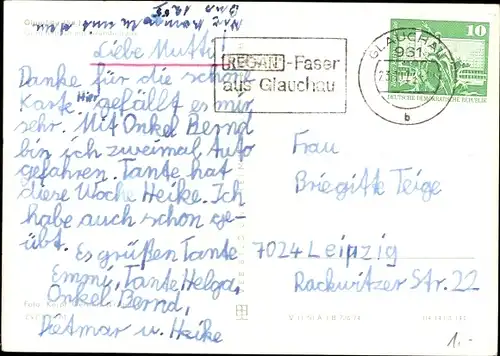 Wir kommen
und mit dem
Bus 12.05
Liebe Mutti!
Danke für die schöne
Karte. Hier gefällt es mir
sehr. Mit Onkel Bernd
bin ich zweimal Auto
gefahren. Tante hat
diese Woche Heike. Ich
habe auch schon ge-
übt.
Es grüßen Tante
Emmi, Tante Helga,
Onkel Bernd,
Dietmar u. Heike
REGAN-Faser
aus Glauchau
GLAUCHAU
961
b
10
DEUTSCHE DEMOKRATISCHE REPUBLIK
Frau
Briegitte Teige
7024 Leipzig
Rackwitzer Str. 22
1.-